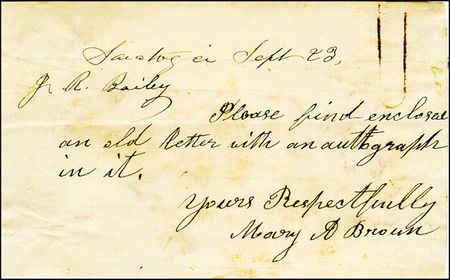 Saratoga Sept 23,
J. R. Bailey
Please find enclosed
an old letter with an autograph
in it.
Yours Respectfully
Mary A Brown